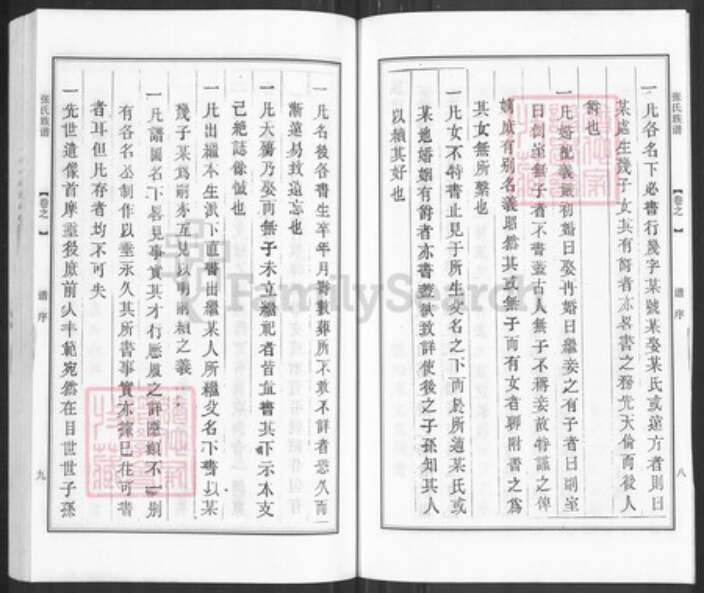 张氏族谱
【卷之一】
谱序
八
一凡各名下必書行幾字某號某娶某氏或遠方者則曰
某處生幾子女其有爵者亦畧書之務先天倫而後人
爵也
一凡婚配義嚴初婚曰娶再婚曰繼妾之有子者曰副室
曰側室無子者不書蓋古人無子不稱妾故特謹之俾
嫡庶有别名義昭然其或無子而有女者聊附書之爲
其女無所繫也
一凡女不特書止見于所生父名之下而於所適某氏或
某地婚姻有爵者亦書蓋欲致詳使後之子孫知其人
以賴其好也
一凡名後各書生卒年月壽數葬所不敢不詳者恐久而
漸遠易致遺忘也
一凡大殤乃娶而無子未立繼祀者皆直書其下示本支
己絶誌傷憾也
一凡出繼本生派下直書出繼某人所繼父名下書以某
幾子某爲嗣亦互見以明嗣賴之義
一凡譜圖名下畧見事實其才行履歷之詳應類不一别
有各名公制作以垂永久其所書事實亦擇已往可書
者耳但凡存者均不可失
一先世遺像首摩難後庶前人丰範宛然在目世世子孫
张氏族谱
【卷之一】
谱序
九
FamilySearch